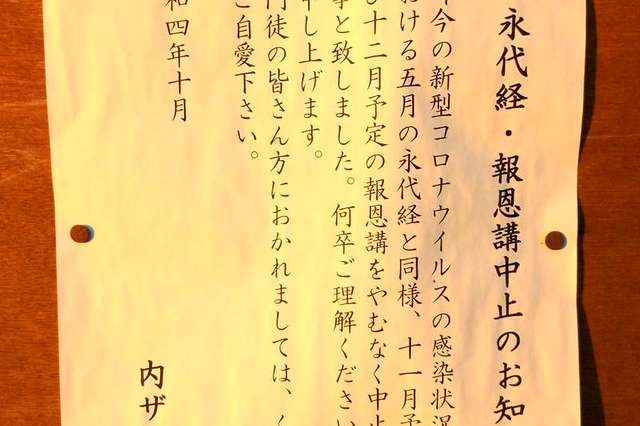 永代経・報恩講中止のお知
昨今の新型コロナウイルスの感染状況
おける五月の永代経と同様、十一月予
十二月予定の報恩講をやむなく中止
事と致しました。何卒ご理解ください
申し上げます。
門徒の皆さん方におかれましては、く
ご自愛下さい。
和四年十月
内ザ